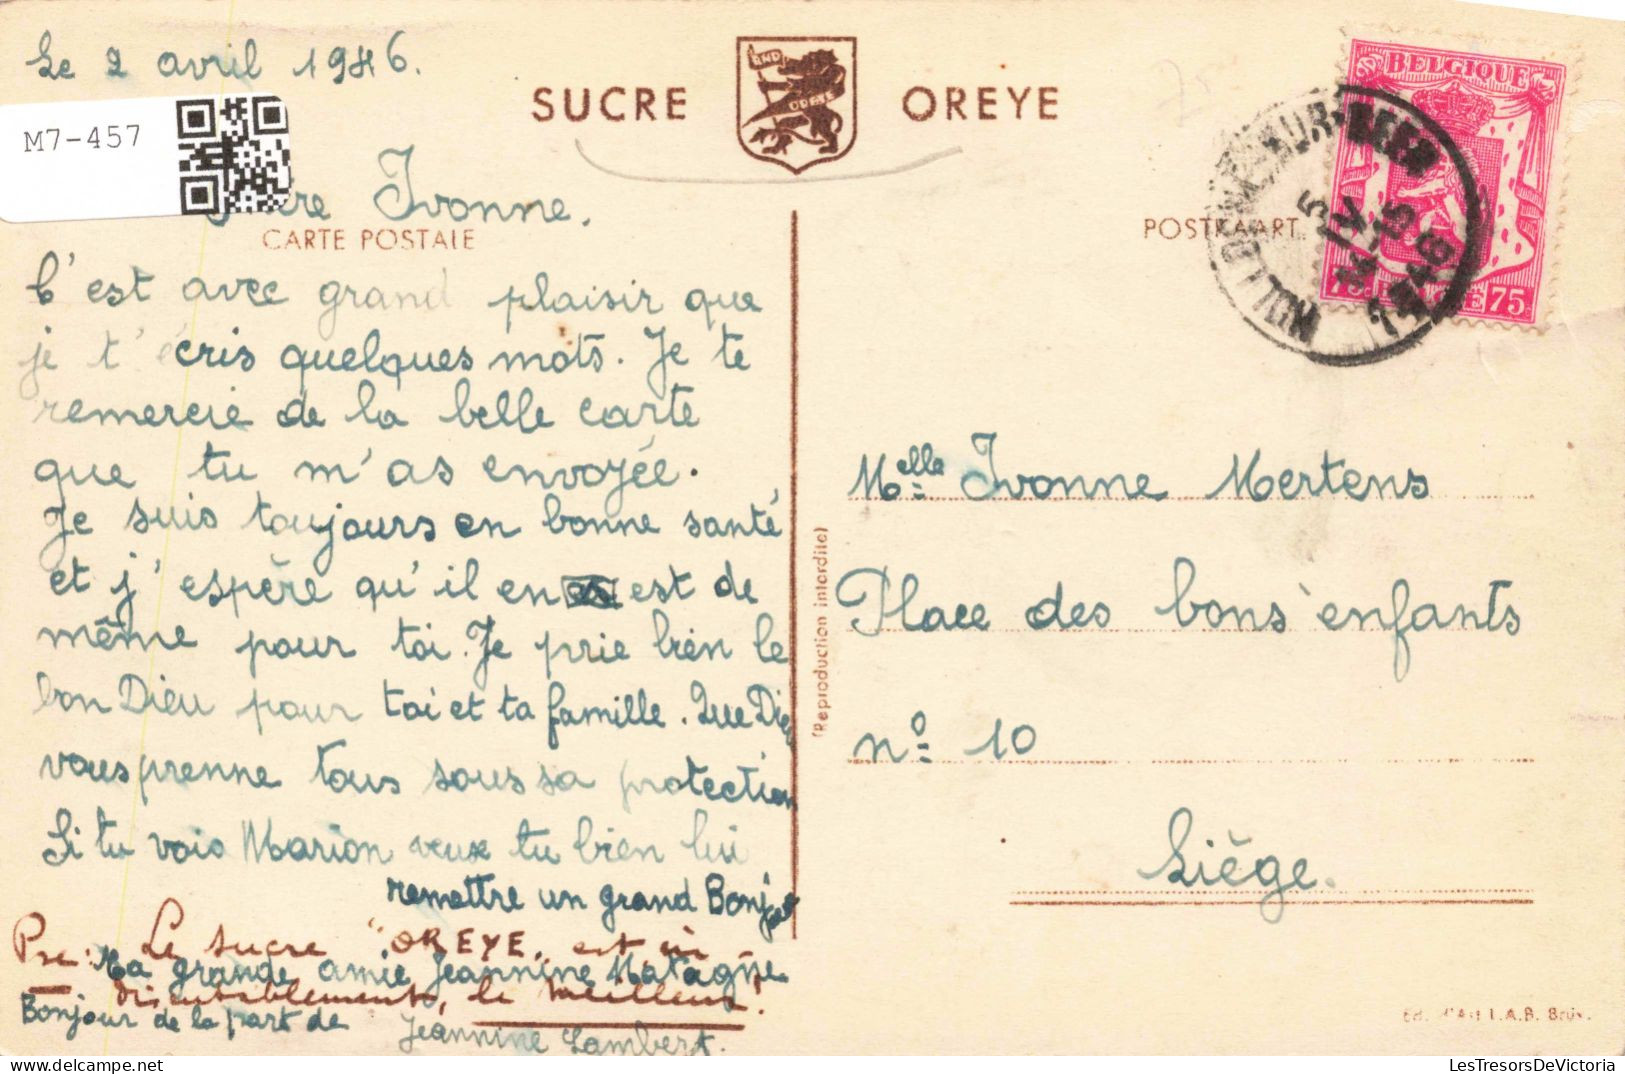 Le 2 avril 1946.
M7-457
SUCRE OREYE
BELGIQUE
Ivonne.
CARTE POSTALE
POSTKAART
75c BELGIË 75c
C'est avec grand plaisir que
je t'écris quelques mots. Je te
remercie de la belle carte
que tu m'as envoyée.
Je suis toujours en bonne santé
et j'espère qu'il en est de
même pour toi. Je prie bien le
bon Dieu pour toi et ta famille. Que Dieu
vous prenne tous sous sa protection
Si tu vois Marion veux tu bien lui
remettre un grand Bonjour
Le sucre "OREYE, est
Ta grande amie Jeannine Matagne
indiscutablement, le meilleur.
Bonjour de la part de
Jeannine Lambert.
(Reproduction interdite)
Melle Ivonne Mertens
Place des bons enfants
n° 10
Liège.
Ed. d'Art L.A.B. Brux.
LesTresorsDeVictoria